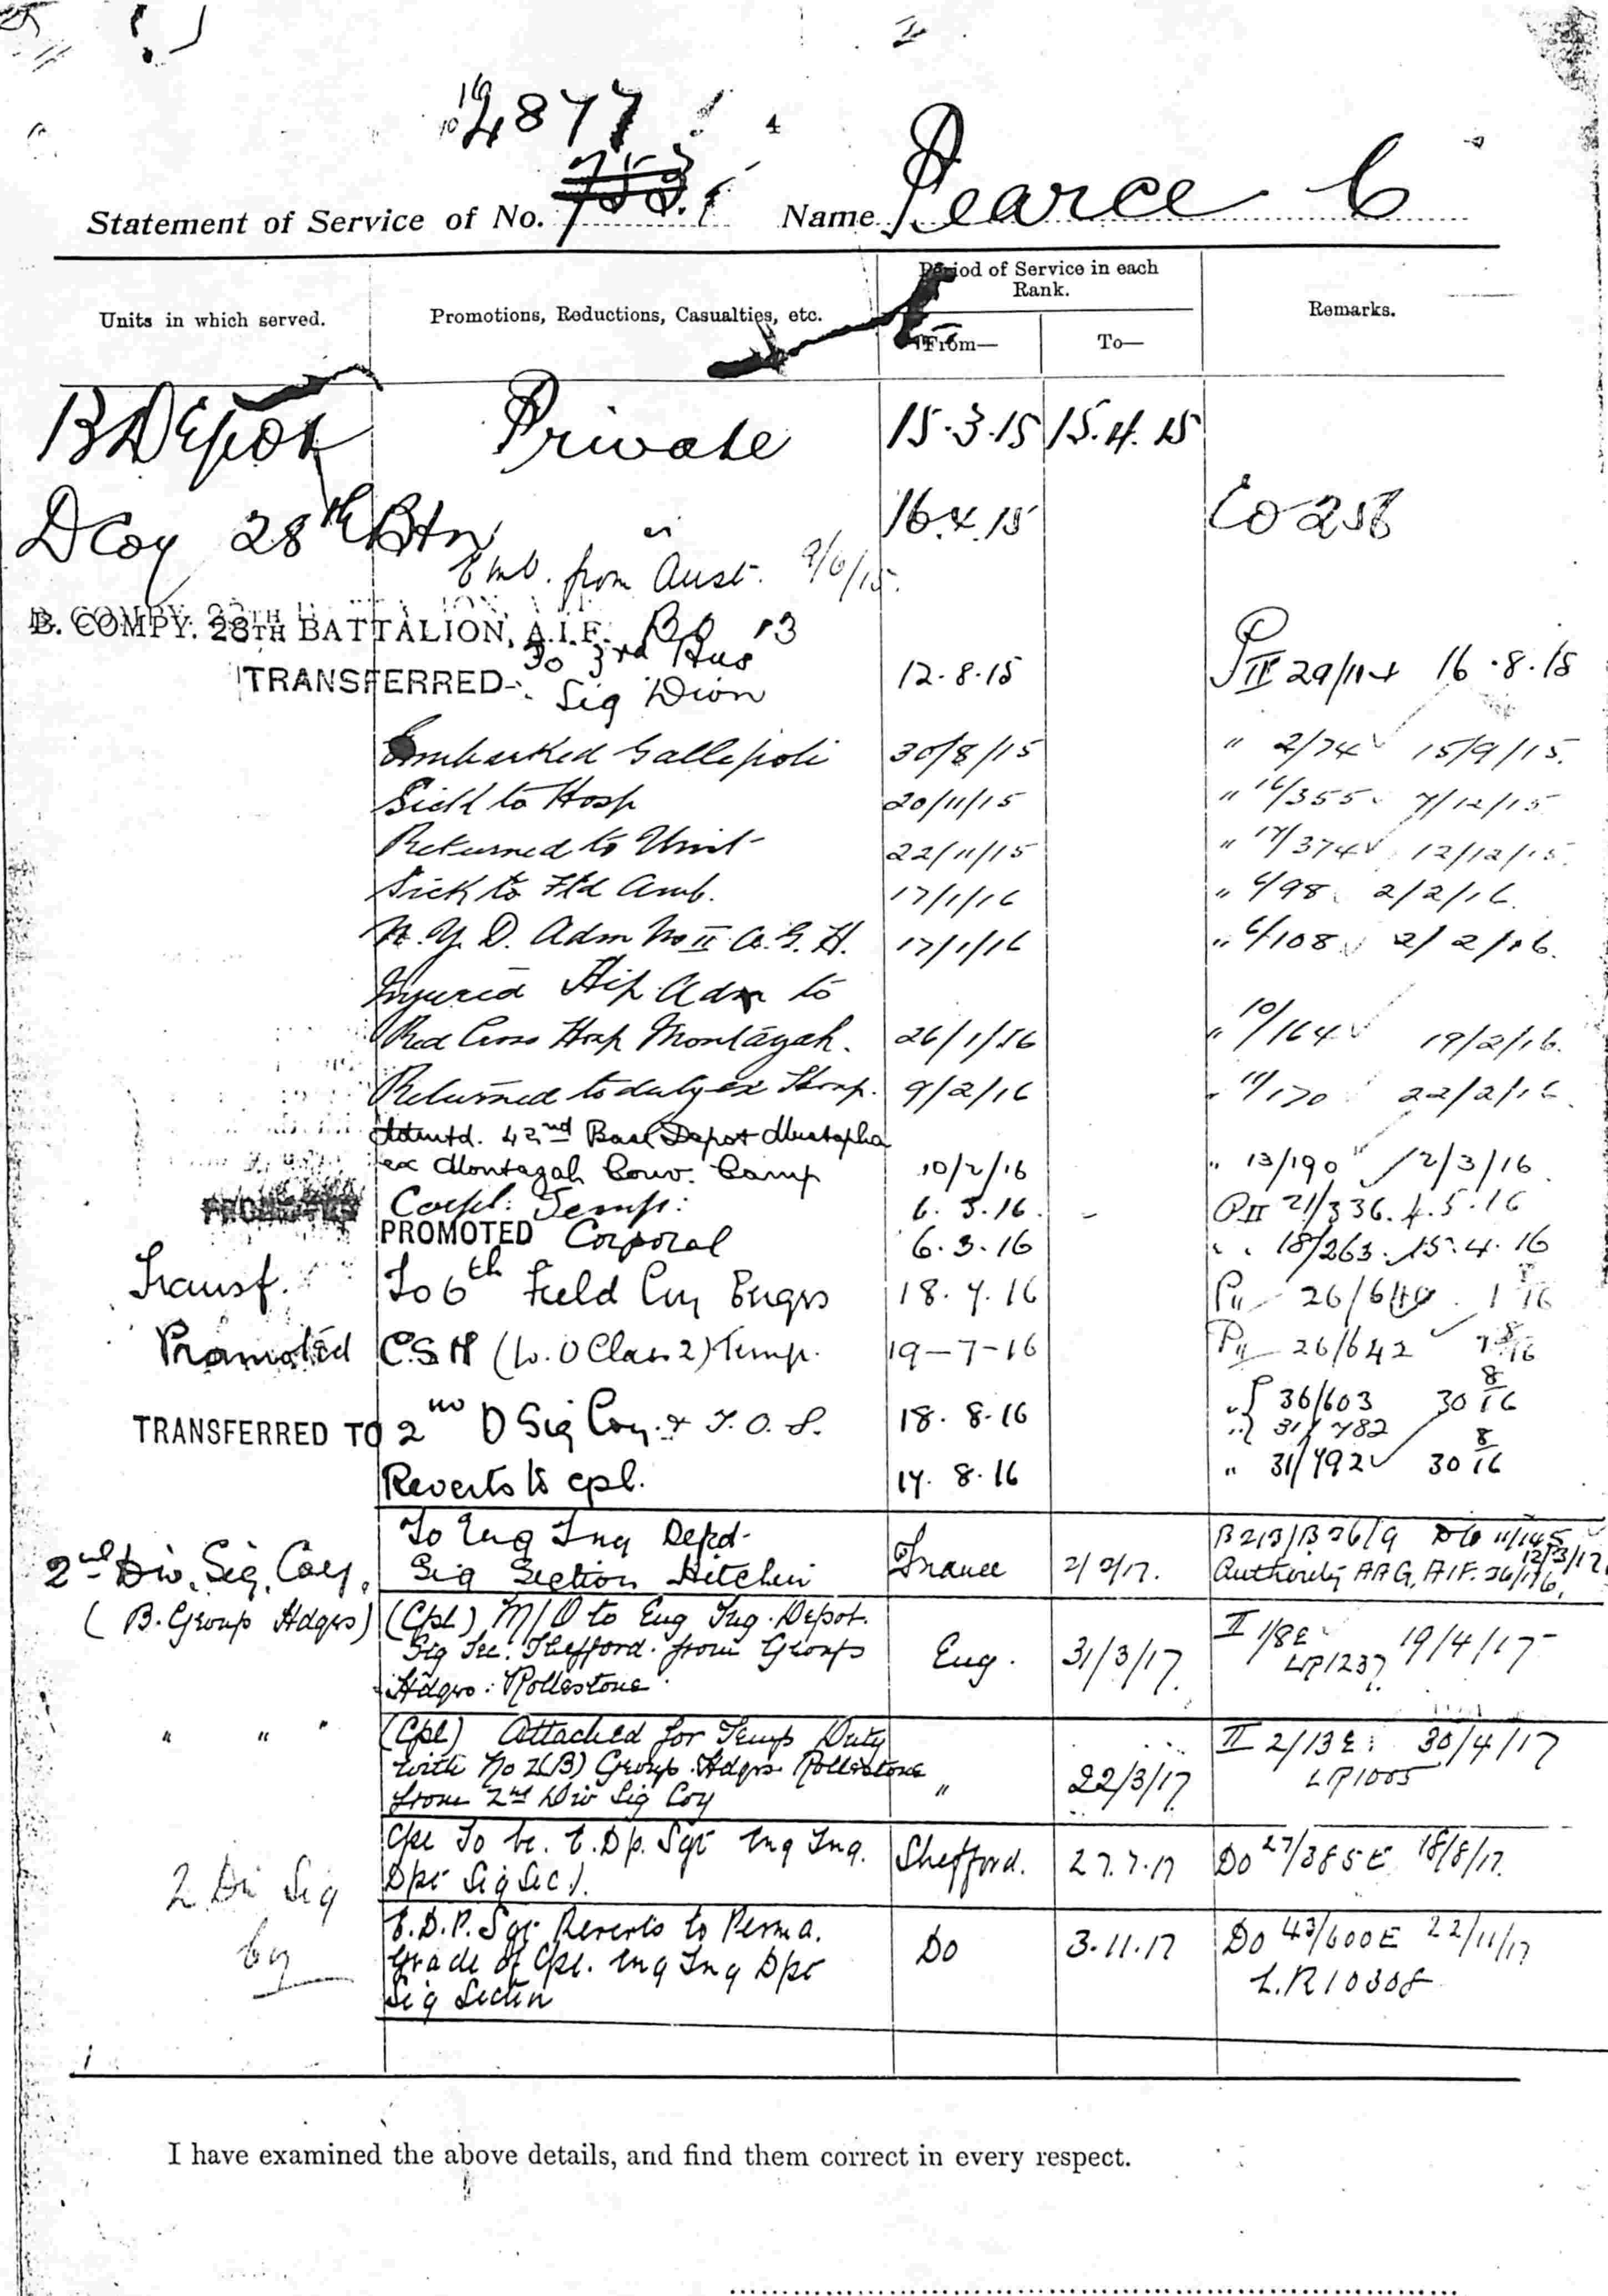 4877
4
Statement of Service of No. Name Pearce C
Units in which served. Promotions, Reductions, Casualties, etc. Period of Service in each Rank. Remarks.
From— To—
B Depot Private 15.3.15 15.4.15
D Coy 28th Btn 16.4.15
Emb. from Aust. 9/6/15.
B. COMPY. 28TH BATTALION, A.I.F.
TRANSFERRED To 3rd Aus 12.8.15 16.8.15
Sig Divn
Embarked Gallipoli 30/8/15 " 2/74 15/9/15.
Sick to Hosp 20/11/15 " 16/355 7/12/15
Returned to Unit 22/11/15 " 17/374 12/12/15.
Sick to Fld Amb. 17/1/16 " 6/98 2/2/16.
N.Y.D. Adm No II A.G.H. 17/1/16 " 6/108 2/2/16.
Injured Hip Adm to
Red Cross Hosp Montazah. 26/1/16 " 10/164 19/2/16.
Returned to duty ex Hosp. 9/2/16 " 11/170 22/2/16
Admtd. 42nd Base Depot Mustapha
ex Montazah Conv. Camp 10/2/16 " 13/190 12/3/16
PROMOTED Corpl: Temp: 6.3.16. PII 21/336. 4.5.16
PROMOTED Corporal 6.3.16 " 18/263. 15.4.16
Transf. To 6th Field Coy Engrs 18.7.16 PII 26/640
Promoted C.S.M (W.O Class 2) Temp. 19-7-16 PII 26/642
TRANSFERRED TO 2nd D Sig Coy. & T.O.S. 18.8.16 36/603 30 8/16
31/782
Reverts to cpl. 17.8.16 " 31/792 30 8/16
2nd Div. Sig. Coy. To Eng Tng Depot
Sig Section Hitchin France 2/3/17. B213/B26/9 DO 11/145
12/3/17.
Authority AAG, AIF. 26/176.
(B. Group Hdqrs) (Cpl) M/O to Eng Tng. Depot.
Sig Sec. Shefford. from Group
Hdqrs: Rollestone Eng. 31/3/17. II 1/8E 19/4/17
LP1237
" " " (Cpl) Attached for Temp Duty
with No 2(B) Group Hdqrs Rollestone
from 2nd Div Sig Coy " 22/3/17 II 2/13E: 30/4/17
LP1005
2 Div Sig Coy Cpl To be. E.D.P. Sgt Eng Tng.
Dpt Sig Sec). Shefford. 27.7.17 DO 27/385E 18/8/17.
E.D.P. Sgt Reverts to Perma.
Grade of Cpl. Eng Tng Dpt
Sig Section Do 3.11.17 DO 43/600E 22/11/17
L.R10308
I have examined the above details, and find them correct in every respect.